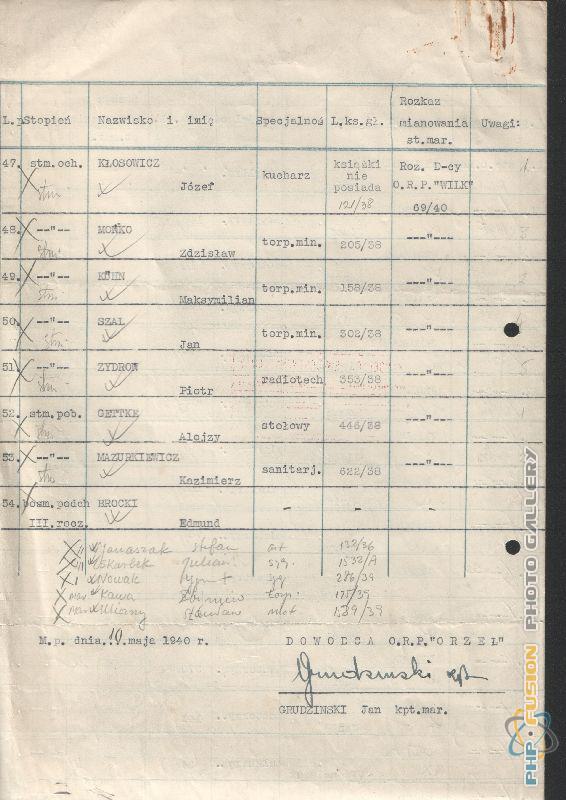 L.p. Stopień Nazwisko i imię Specjalnoś L.ks.gł. Rozkaz mianowania st.mar. Uwagi:
47. stm.och. KŁOSOWICZ Józef kucharz książki nie posiada 121/38 Roz. D-cy O.R.P."WILK" 69/40 1
stm
48. --"-- MOŃKO Zdzisław torp.min. 205/38 ---"--- 3
stm
49. --"-- KUHN Maksymilian torp.min. 158/38 ---"--- 2
stm
50. --"-- SZAL Jan torp.min. 302/38 ---"---
stm
51. --"-- ZYDROŃ Piotr radiotech 353/38 ---"---
stm
52. stm.pob. GETTKE Alojzy stołowy 446/38 ---"--- 1
stm
53. --"-- MAZURKIEWICZ Kazimierz sanitarj. 622/38 ---"---
stm
54. bosm.podch III.rocz. BROCKI Edmund - - -
Janaszak Stefan art 132/36
Skarbek Julian syg. 1532/A
Nowak 286/39
Kawa Zbigniew torp. 175/39
mot 1539/39
M.p. dnia. 10 maja 1940 r. D O W O D C A O.R.P."ORZEŁ"
Grudzinski kpt.
GRUDZINSKI Jan kpt.mar.
PHP-FUSION PHOTO GALLERY